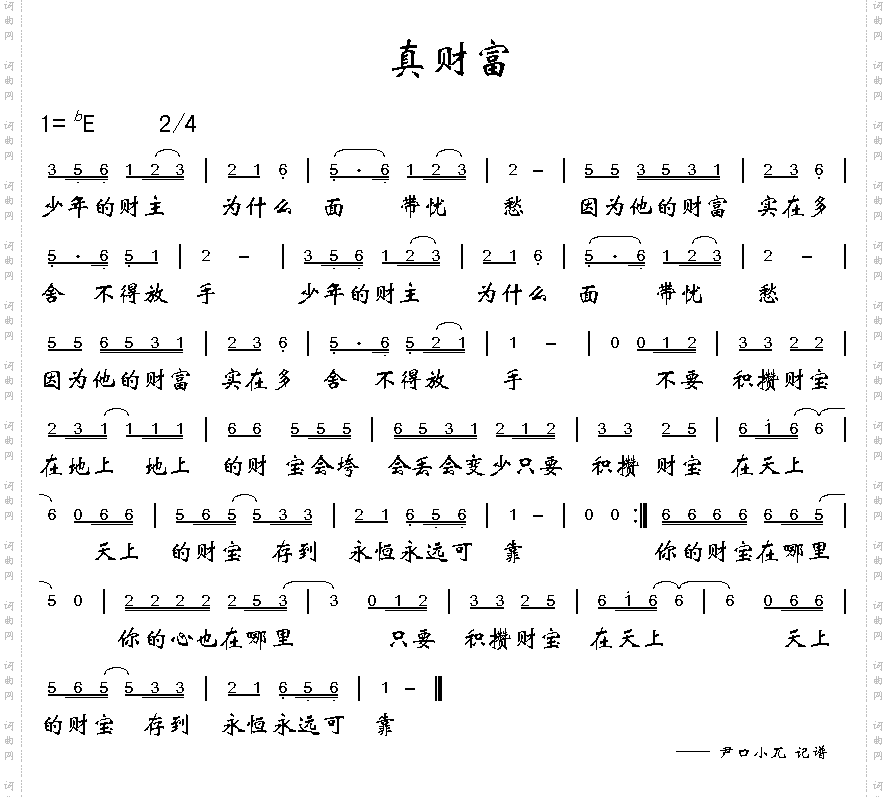 真财富
1= bE 2/4
3 5 6 1 2 3 | 2 1 6 | 5 · 6 1 2 3 | 2 – | 5 5 3 5 3 1 | 2 3 6 |
少年的财主 为什么 面 带忧 愁 因为他的财富 实在多
5 · 6 5 1 | 2 – | 3 5 6 1 2 3 | 2 1 6 | 5 · 6 1 2 3 | 2 – |
舍 不得放 手 少年的财主 为什么 面 带忧 愁
5 5 6 5 3 1 | 2 3 6 | 5 · 6 5 2 1 | 1 – | 0 0 1 2 | 3 3 2 2 |
因为他的财富 实在多 舍 不得放 手 不要 积攒财宝
2 3 1 1 1 1 | 6 6 5 5 5 | 6 5 3 1 2 1 2 | 3 3 2 5 | 6 1 6 6 |
在地上 地上 的财 宝会垮 会丢会变少只要 积攒 财宝 在天上
6 0 6 6 | 5 6 5 5 3 3 | 2 1 6 5 6 | 1 – | 0 0 :| 6 6 6 6 6 6 5 |
天上 的财宝 存到 永恒永远可 靠 你的财宝在哪里
5 0 | 2 2 2 2 2 5 3 | 3 0 1 2 | 3 3 2 5 | 6 1 6 6 | 6 0 6 6 |
你的心也在哪里 只要 积攒财宝 在天上 天上
5 6 5 5 3 3 | 2 1 6 5 6 | 1 – ‖
的财宝 存到 永恒永远可 靠
—— 尹口小兀 记谱
词曲网